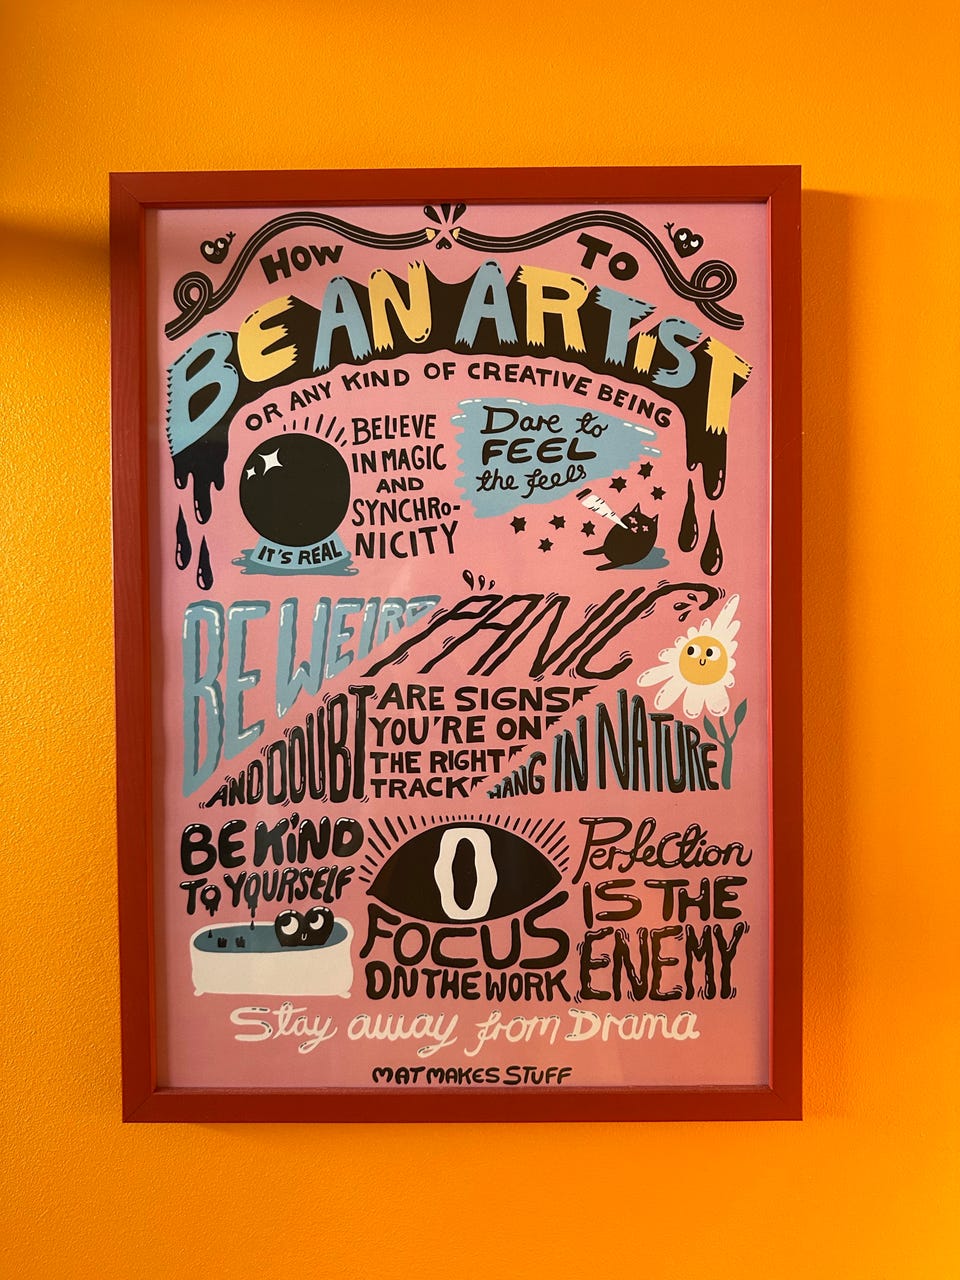 HOW TO
BE AN ARTIST
OR ANY KIND OF CREATIVE BEING
BELIEVE
IN MAGIC
AND
SYNCHRO-
NICITY
IT'S REAL
Dare to
FEEL
the feels
BE WEIRD
PANIC
AND DOUBT
ARE SIGNS
YOU'RE ON
THE RIGHT
TRACK
HANG IN NATURE
BE KIND
TO YOURSELF
FOCUS
ON THE WORK
Perfection
IS THE
ENEMY
Stay away from Drama
MAT MAKES STUFF